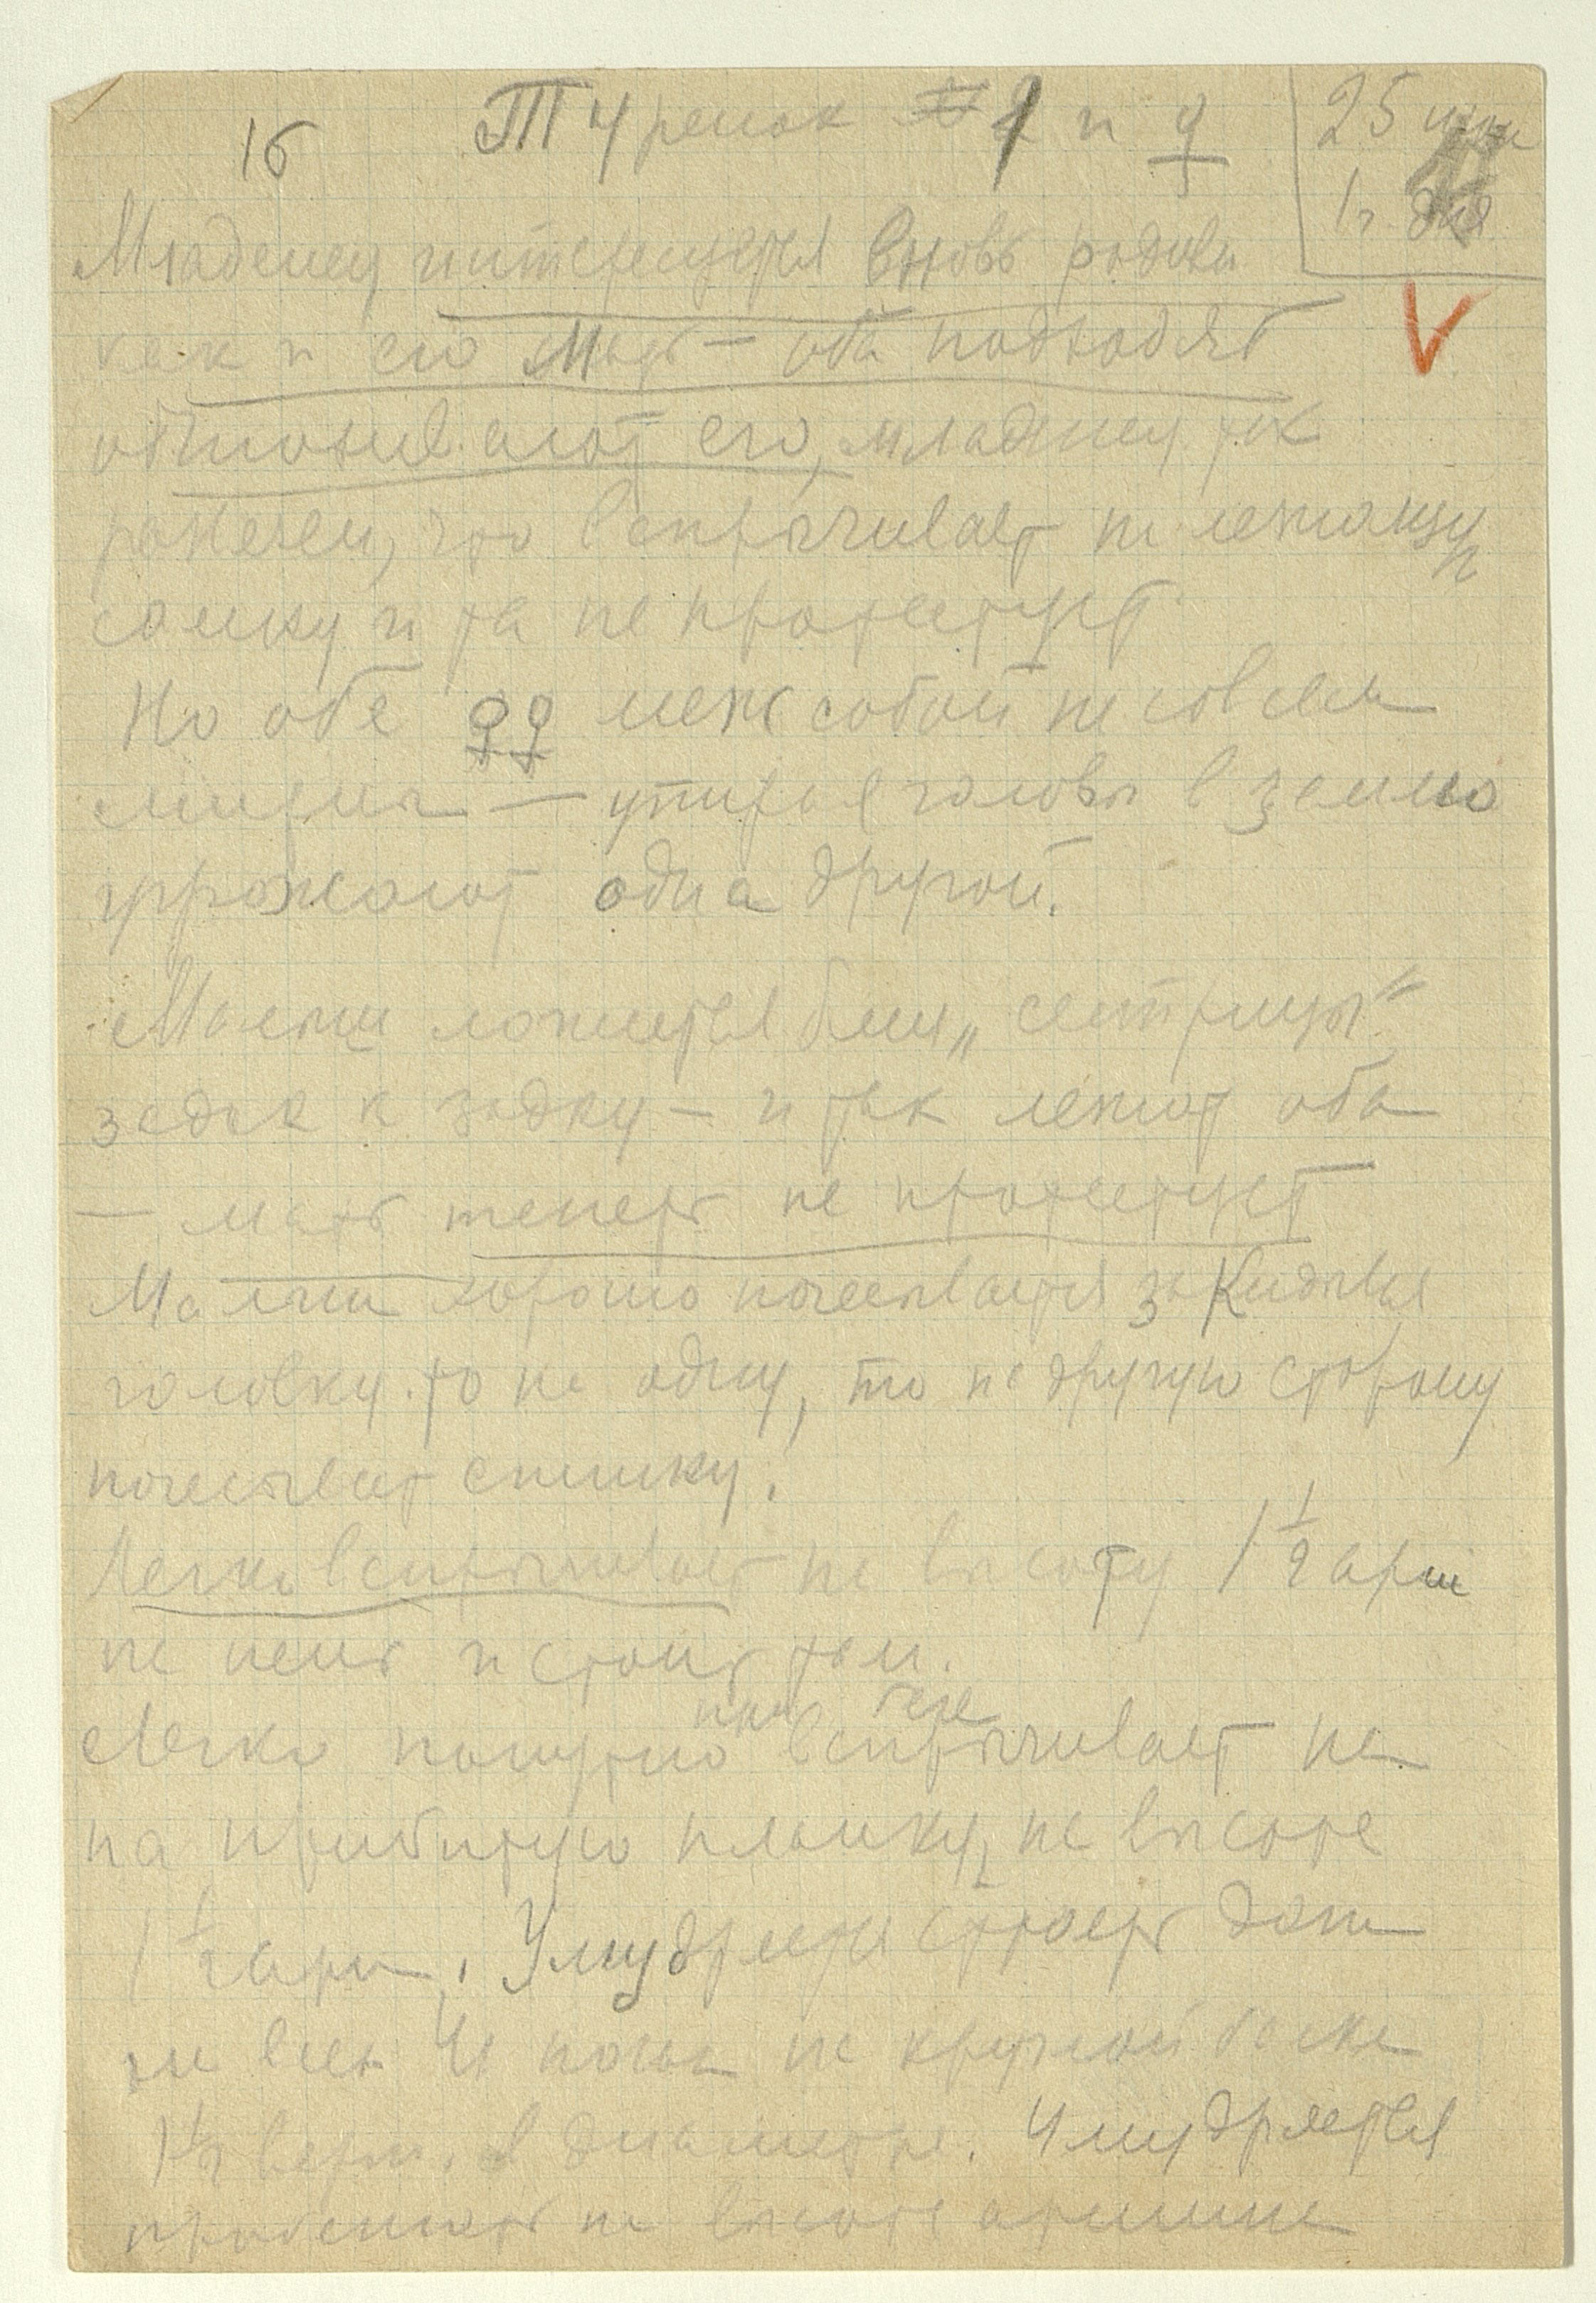 16 Турёнок 1 и ♀
25 мая
1 ч. дня
Младенец интересуется вновь родивш
как и его мать — оба подходят
обнюхивают его, младенец так
развезен, что вспрыгивает на лежащую
самку и та не протестует.
Но обе ♀♀ меж собой не совсем
мирны — упирая головы в землю
угрожают одна другой.
Малыш ложится близ „сестрицы"
задок к задку — и так лежат оба
— мать теперь не протестует
Малыш хорошо почесывается закидывая
головку то на одну, то на другую сторону
почесывает спинку.
Легко вспрыгивает на высоту 1 1/2 арш
на пень и стоит там.
Легко попутно при беге вспрыгивает на
на прибитую планку, на высоте
1 1/2 арш. Умудряется стоять даже
на всех 4х ногах на круглой балке
1 1/2 верш. в диаметре. Умудряется
пробежать на высоте аршина